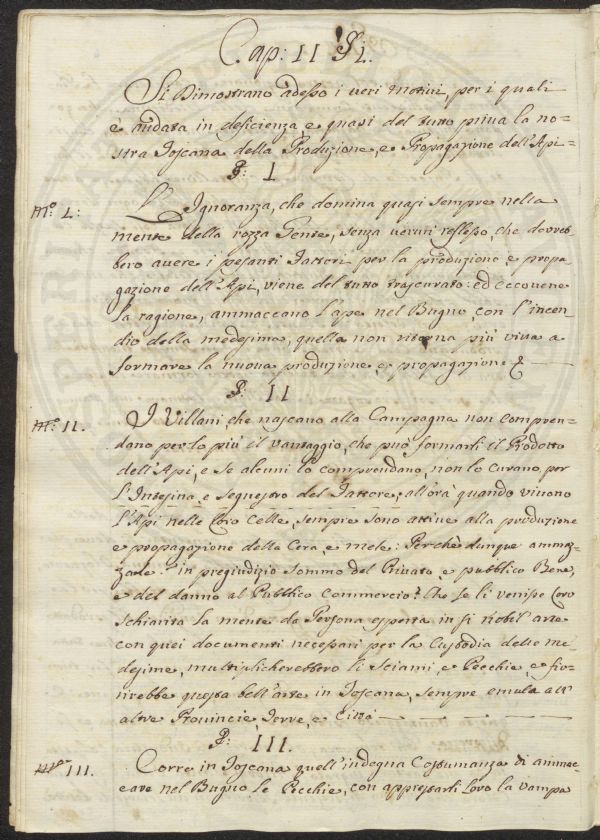 Cap: II §i.
Si Dimostrano adesso i veri motivi, per i quali
è andata in deficienza, e quasi del tutto priva la no=
stra Toscana della Produzione, e Propagazione dell'Api=
§: I
Mo: I.: L'Ignoranza, che domina quasi sempre nella
mente della rozza Gente, senza verun riflesso, che dovreb=
bero avere i pesanti Fattori per la produzione e propa
gazione dell'Api, viene del tutto trascurato: ed eccovene
la ragione, ammaccano l'ape nel Bugno, con l'incen=
dio della medesima, quella non ritorna più viva a
formare la nuova produzione, e propagazione &
§: II
Mo: II. I Villani che nascano alla Campagna non compren=
dano per lo più il vantaggio, che può formarli il Prodotto
dell'Api, e se alcuni lo comprendano, non lo curano, per
l'Insegna, e sequestro del Fattore; all'ora quando vivono
l'Api nelle loro Celle, sempre sono attive alla produzione
e propagazione della Cera, e mele: Perchè dunque ammaz=
zarle in pregiudizio sommo del Privato, e pubblico Bene,
e del danno al Pubblico Commercio? Che se li venisse loro
schiarita la mente da Persona esperta in sì nobil arte
con quei documenti necessari per la Custodia delle me=
desime, multiplicherebbero li Sciami, e Pecchie, e fio=
rirebbe questa bell'arte in Toscana, sempre emula all'
altre Provincie, Terre, e Città
§: III.
Mo: III. Corre in Toscana quell'indegna Costumanza di ammac=
care nel Bugno le Pecchie, con appressarli loro la vampa